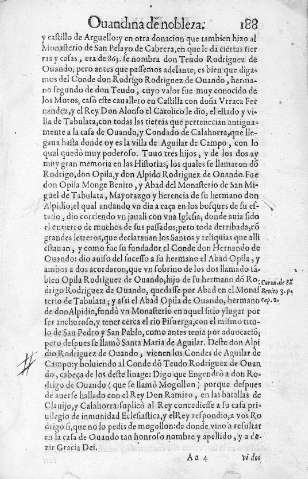 Ouandina de nobleza. 188
y castillo de Arguello: y en otra donacion que tambien hizo al
Monasterio de San Pelayo de Cabrera, en que le dà ciertas tier
ras y casas, era de 865. se nombra don Teudo Rodriguez de
Ouando, pero antes que passemos adelante, es bien que diga-
mos del Conde don Rodrigo Rodriguez de Ouando, herma-
no segundo de don Teudo, cuyo valor fue muy conocido de
los Moros, casò este cauallero en Castilla con doña Vrraca Fer
nandez, y el Rey Don Alonso el Catolico le dio, el estado y vi-
lla de Tabulata, con todas las tierras que pertenecian antigua-
mente a la casa de Ouando, y Condado de Calahorra, que lle-
gaua hasta donde oy es la villa de Aguilar de Campo, con lo
qual quedò muy poderoso. Tuuo tres hijos, y de los dos ay
muy gran memoria en las Historias, los quales se llamaron dõ
Rodrigo, don Opila, y don Alpidio Rodriguez de Ouando. Fue
don Opila Monge Benito, y Abad del Monasterio de San Mi-
guel de Tabulata, Mayorazgo y herencia de su hermano don
Alpidio, el qual andando vn dia a caça en los bosques de su es-
tado, dio corriendo vn jauali con vna Iglesia, donde auia sido
el entierro de muchos de sus passados; pero toda derribada, cõ
grandes letreros, que declarauan los Santos y reliquias que alli
estauan, y como fue su fundador el Conde don
Ouando: dio auiso del sucesso a su hermano el Abad Opila, y
ambos a dos acordaron, que vn sobrino de los dos llamado tã
bien Opila Rodriguez de Ouando, hijo de su hermano dõ Ro
drigo Rodriguez de Ouando, quedasse por Abad en el Monas
terio de Tabulata; y assi el Abad Opila de Ouando, hermano
de don Alpidio, fundò vn Monasterio en aquel sitio y lugar por
ser anchoroso, y tener cerca el rio Pisuerga, con el mismo titu-
lo de San Pedro y San Pablo, como antes tenia por aduocaciõ,
pero despues se llamò Santa Maria de Aguilar. Deste don Alpi
dio Rodriguez de Ouando, vienen los Condes de Aguilar de
Campo: y boluiendo al Conde dõ Teudo Rodriguez de Ouan
do, cabeça de los deste linage: Digo que Engendrò a don Ro-
drigo de Ouando (que se llamò Mogollon) porque despues
de auerse hallado con el Rey Don Ramiro, en las batallas de
Clauijo, y Calahorra suplicò al Rey concediesse a su casa pri-
uilegio de inmunidad Eclesiastica, y el Rey respondio, a vos Ro
drigo si, que no lo pedis de mogollon: de donde vino a resultar
en la casa de Ouando tan honroso nombre y apellido, y a de-
zir Gracia Dei.
A a 4